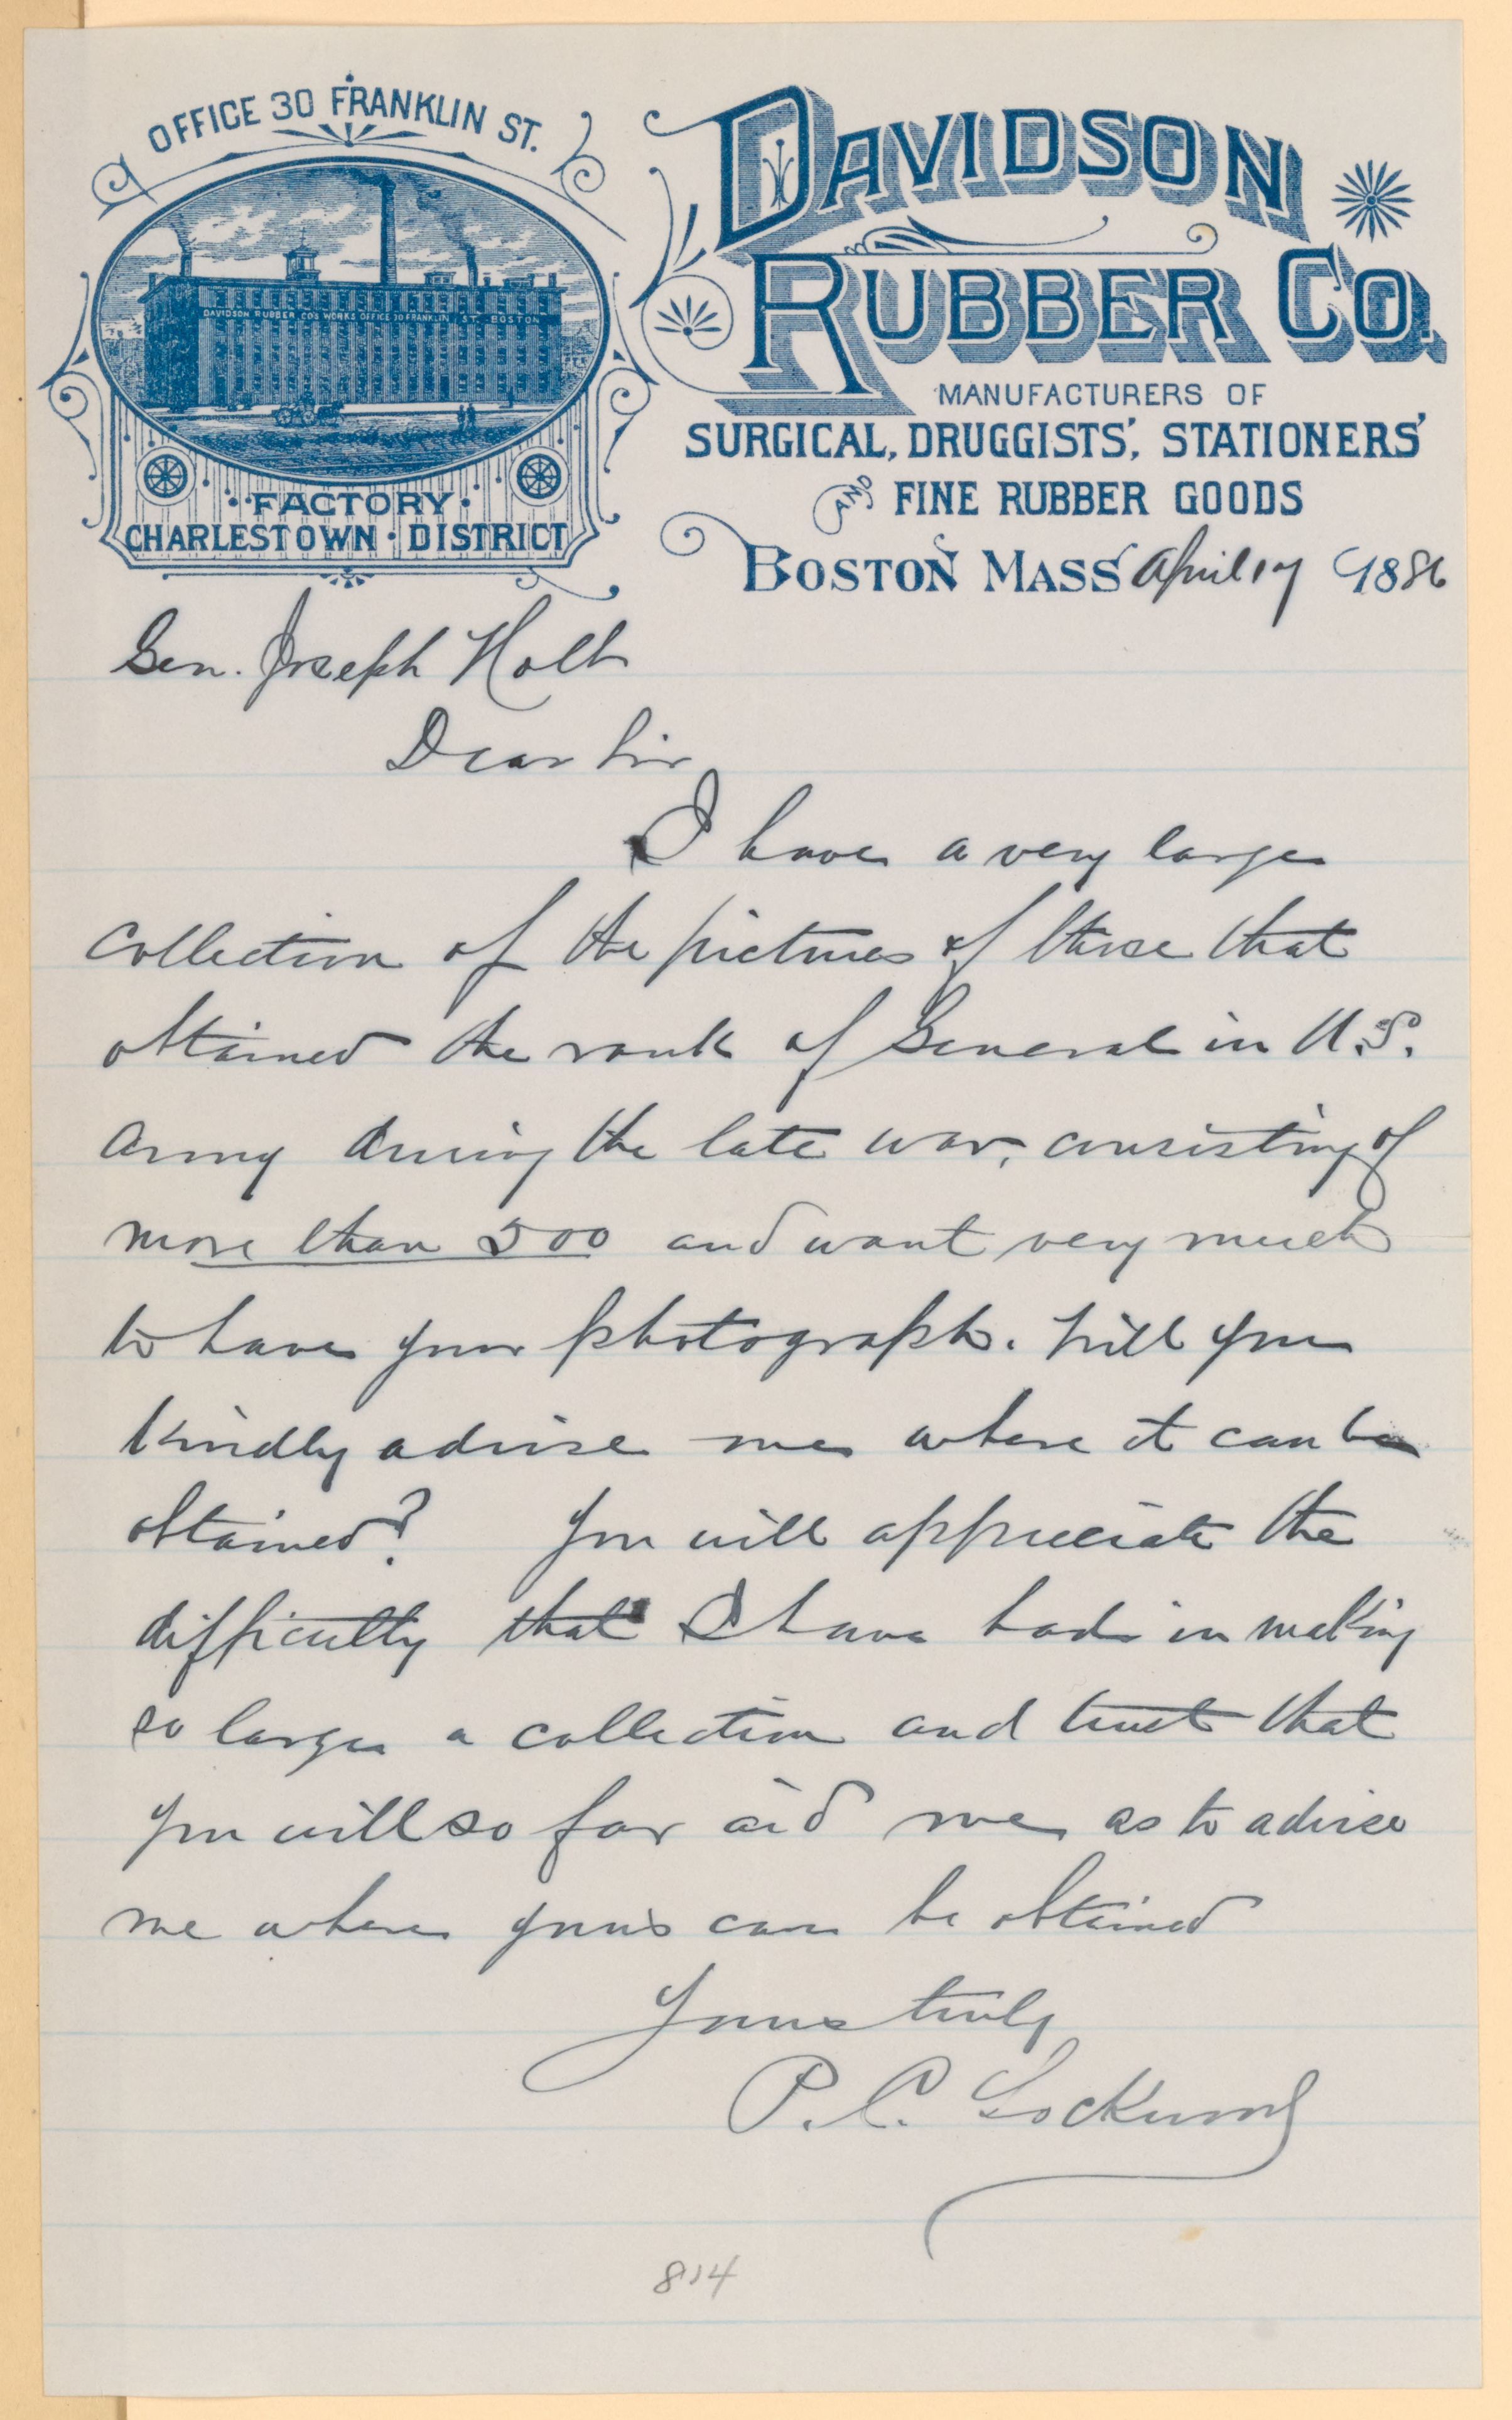 OFFICE 30 FRANKLIN ST.
DAVIDSON RUBBER CO'S WORKS OFFICE 30 FRANKLIN ST. BOSTON
FACTORY
CHARLESTOWN DISTRICT
DAVIDSON
RUBBER CO.
MANUFACTURERS OF
SURGICAL, DRUGGISTS', STATIONERS'
AND FINE RUBBER GOODS
BOSTON MASS April 17 1886
Gen. Joseph Holt
Dear Sir
I have a very large
collection of the pictures of those that
obtained the rank of General in U.S.
Army during the late war, consisting of
more than 500 and want very much
to have your photograph. Will you
kindly advise me where it can be
obtained? You will appreciate the
difficulty that I have had in making
so large a collection and trust that
you will so far aid me as to advise
me where yours can be obtained
Yours truly
P. C. Lockwood
814